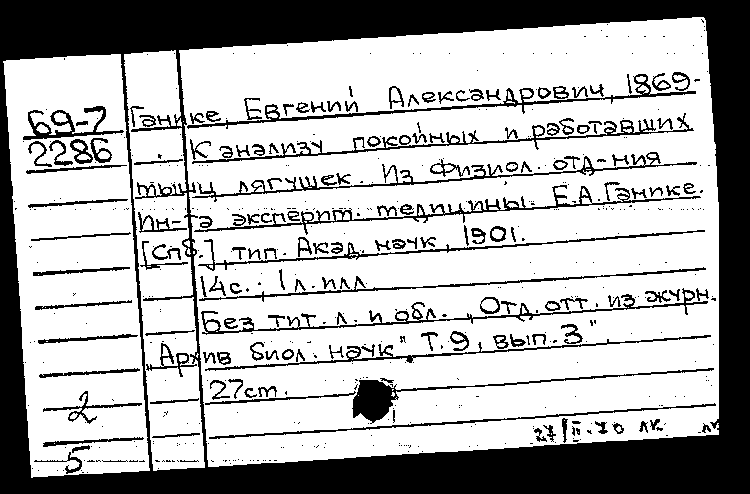 69-7 Ганике, Евгений Александрович, 1869-
2286 К анализу покойных и работавших
мышц лягушек. Из Физиол. отд-ния
Ин-та эксперим. медицины. Е.А. Ганике.
[Спб.], тип. Акад. наук, 1901.
14 с.; 1 л. илл
Без тит. л. и обл. „Отд. отт. из журн.
„Архив биол. наук". Т. 9, вып. 3".
27 см.
2
27/II-70 ЛК ЛК
5